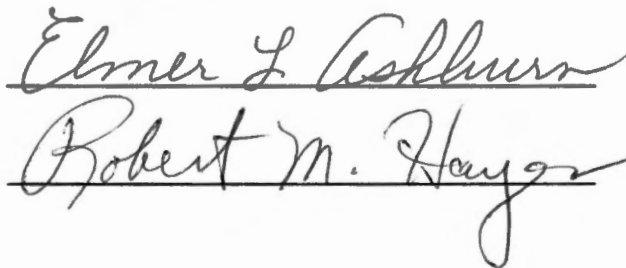 Elmer L Ashburn
Robert M. Hayes